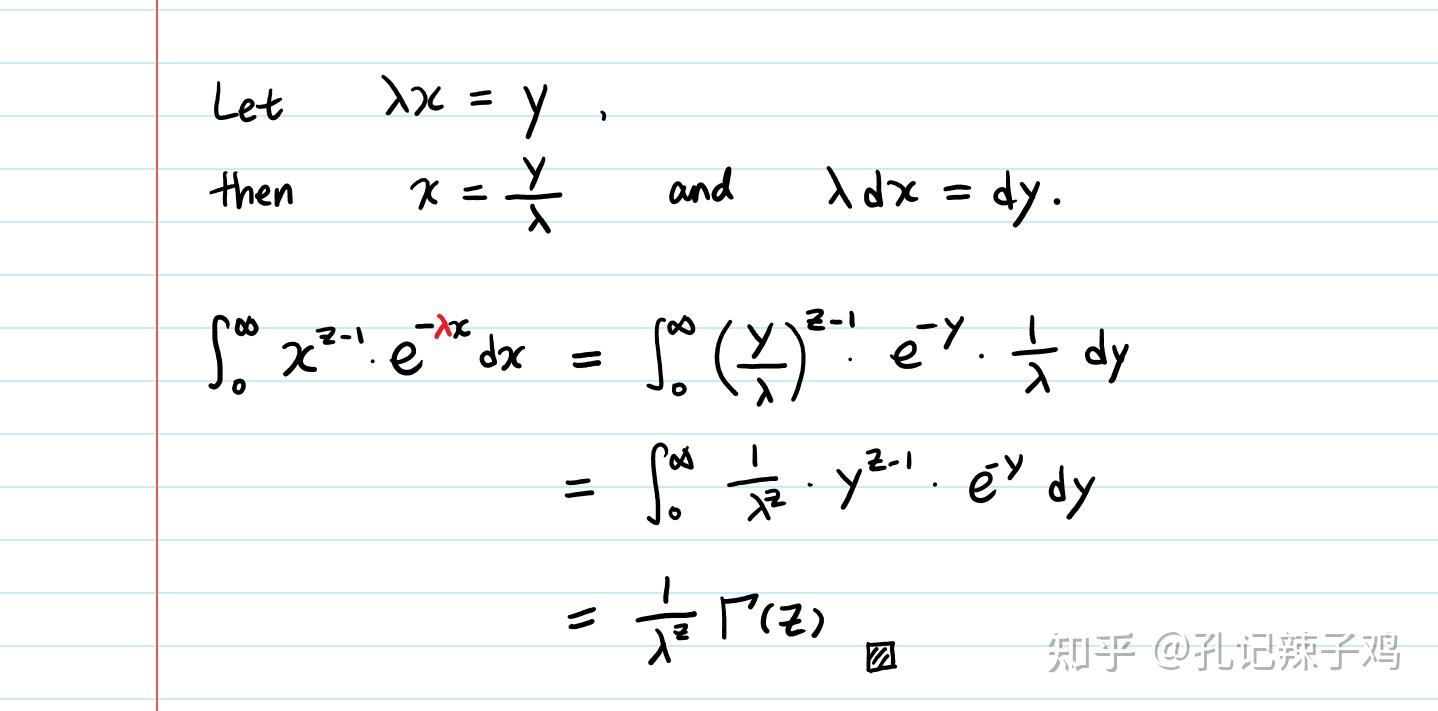 Let λx = y ,
then x = y/λ and λ dx = dy.
∫₀^∞ x^(z-1) · e^(-λx) dx = ∫₀^∞ (y/λ)^(z-1) · e^(-y) · 1/λ dy
= ∫₀^∞ 1/λ^z · y^(z-1) · e^(-y) dy
= 1/λ^z Γ(z)
知乎 @孔记辣子鸡